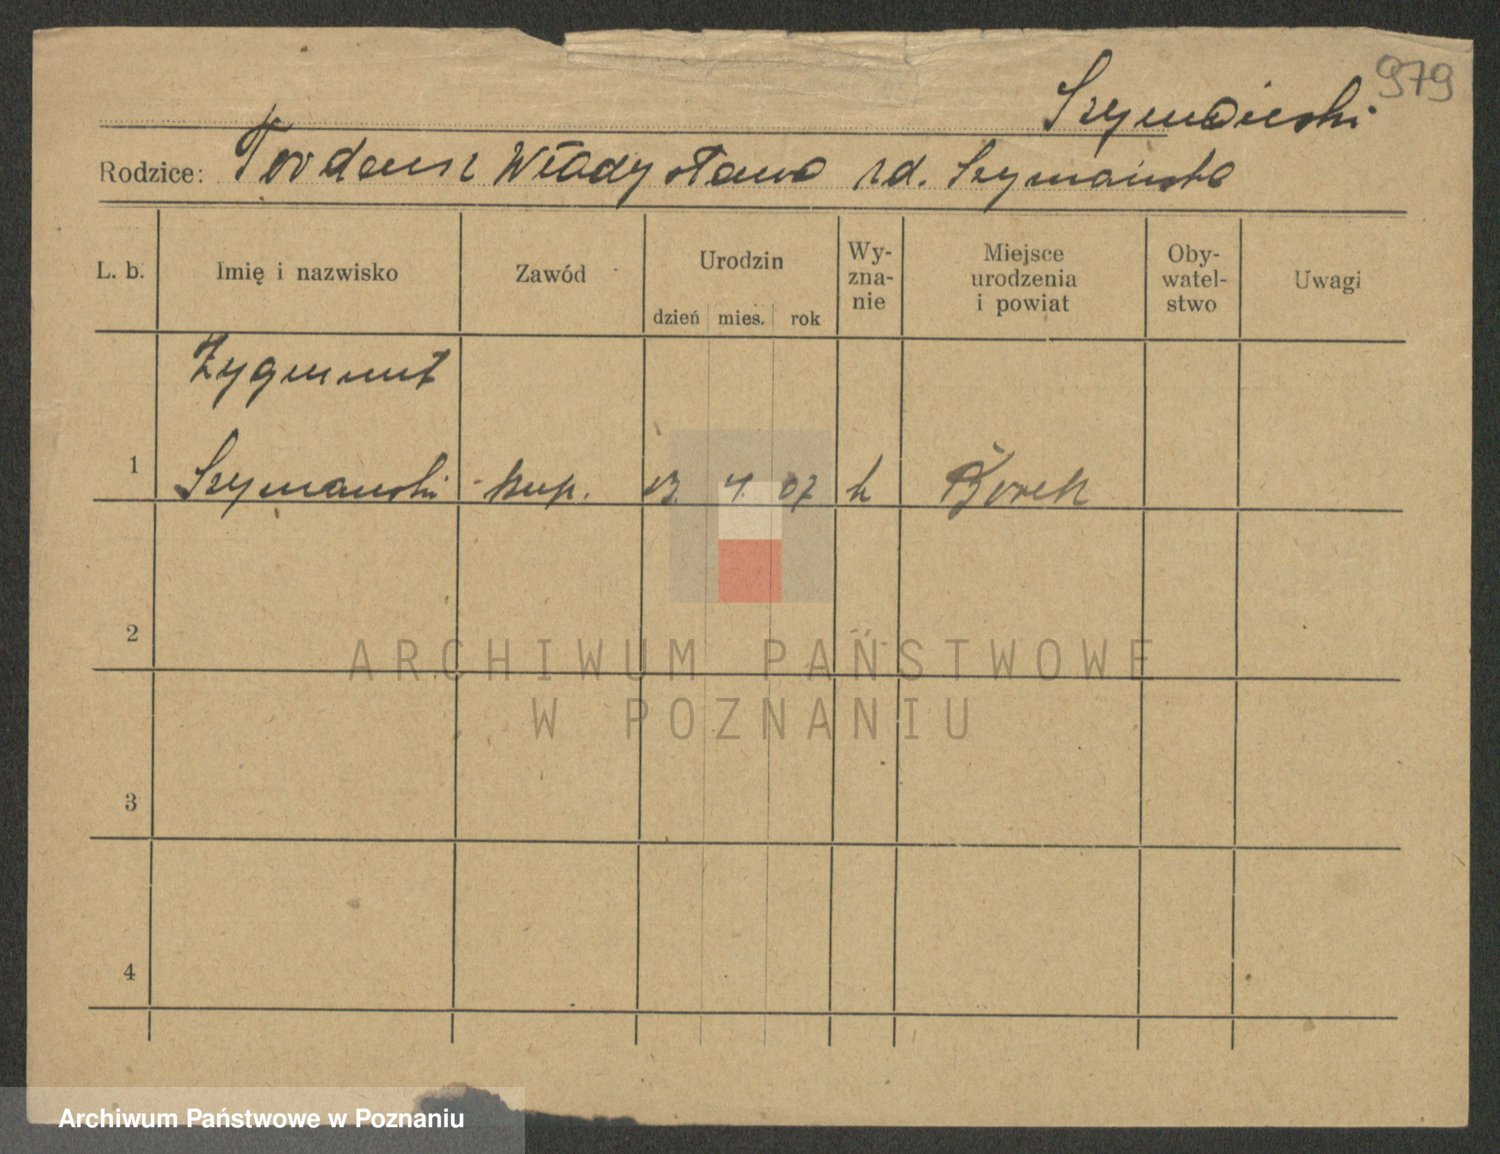 979
Szymański
Rodzice: Tadeusz Władysława zd. Szymańska
L. b. Imię i nazwisko Zawód Urodzin dzień mies. rok Wy- zna- nie Miejsce urodzenia i powiat Oby- watel- stwo Uwagi
Zygmunt
1 Szymański kup. 13. 4. 07 k Borek
2
3
4
ARCHIWUM PAŃSTWOWE
W POZNANIU
Archiwum Państwowe w Poznaniu